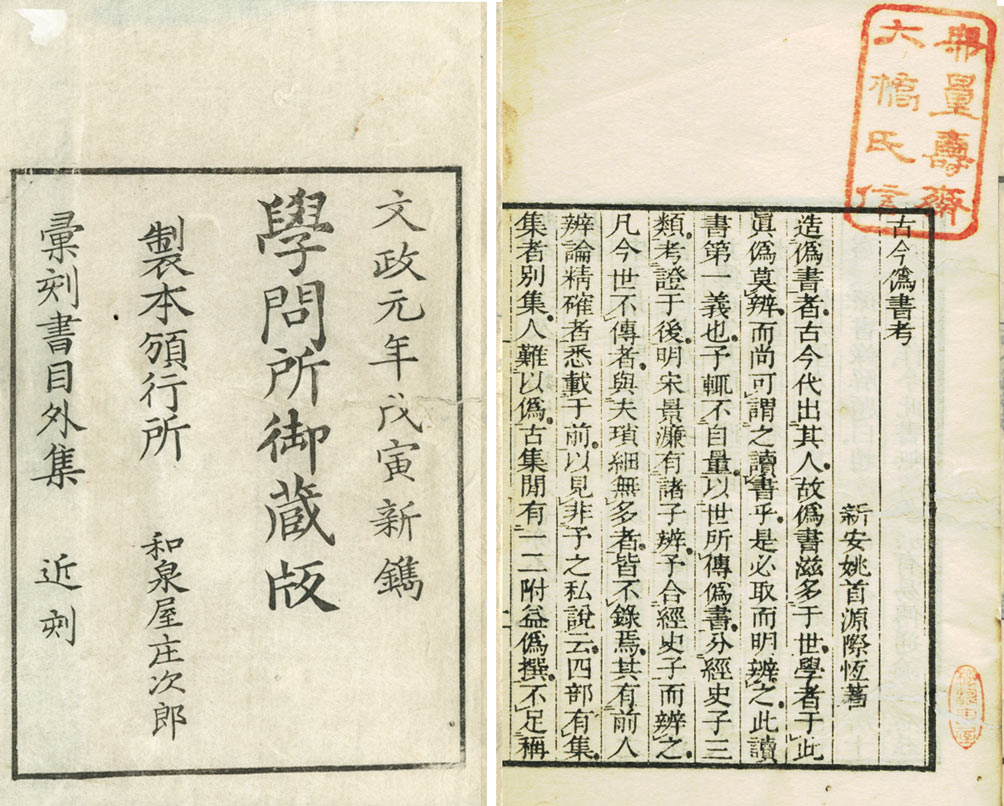 文政元年戊寅新鐫
學問所御蔵版
製本頒行所　和泉屋庄次郎
彙刻書目外集　近刻
無量壽齋
大橋氏信
古今僞書考
新安姚首源際恆著
造僞書者古今代出其人故僞書滋多于世學者于此
眞僞莫辨而尚可謂之讀書乎是必取而明辨之此讀
書第一義也予輒不自量以世所傳僞書分經史子三
類考證于後明宋景濂有諸子辨予合經史子而辨之
凡今世不傳者與夫瑣細無多者皆不錄焉其有前人
辨論精確者悉載于前以見非予之私說云四部有集
集者別集人難以僞古集閒有一二附益僞撰不足稱